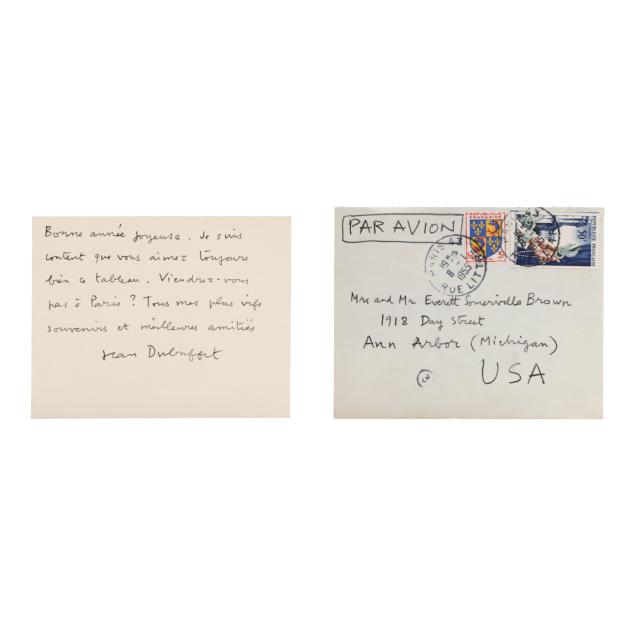 Bonne année joyeuse. Je suis
content que vous aimez toujours
bien ce tableau. Viendrez-vous
pas à Paris? Tous mes plus vifs
souvenirs et meilleures amitiés
Jean Dubuffet
PAR AVION
REPUBLIQUE
FRANÇAISE
PARIS
8-1
1955
RUE LITTRÉ
50
Mrs and Mr Everett Somerville Brown
1918 Day Street
Ann Arbor (Michigan)
USA